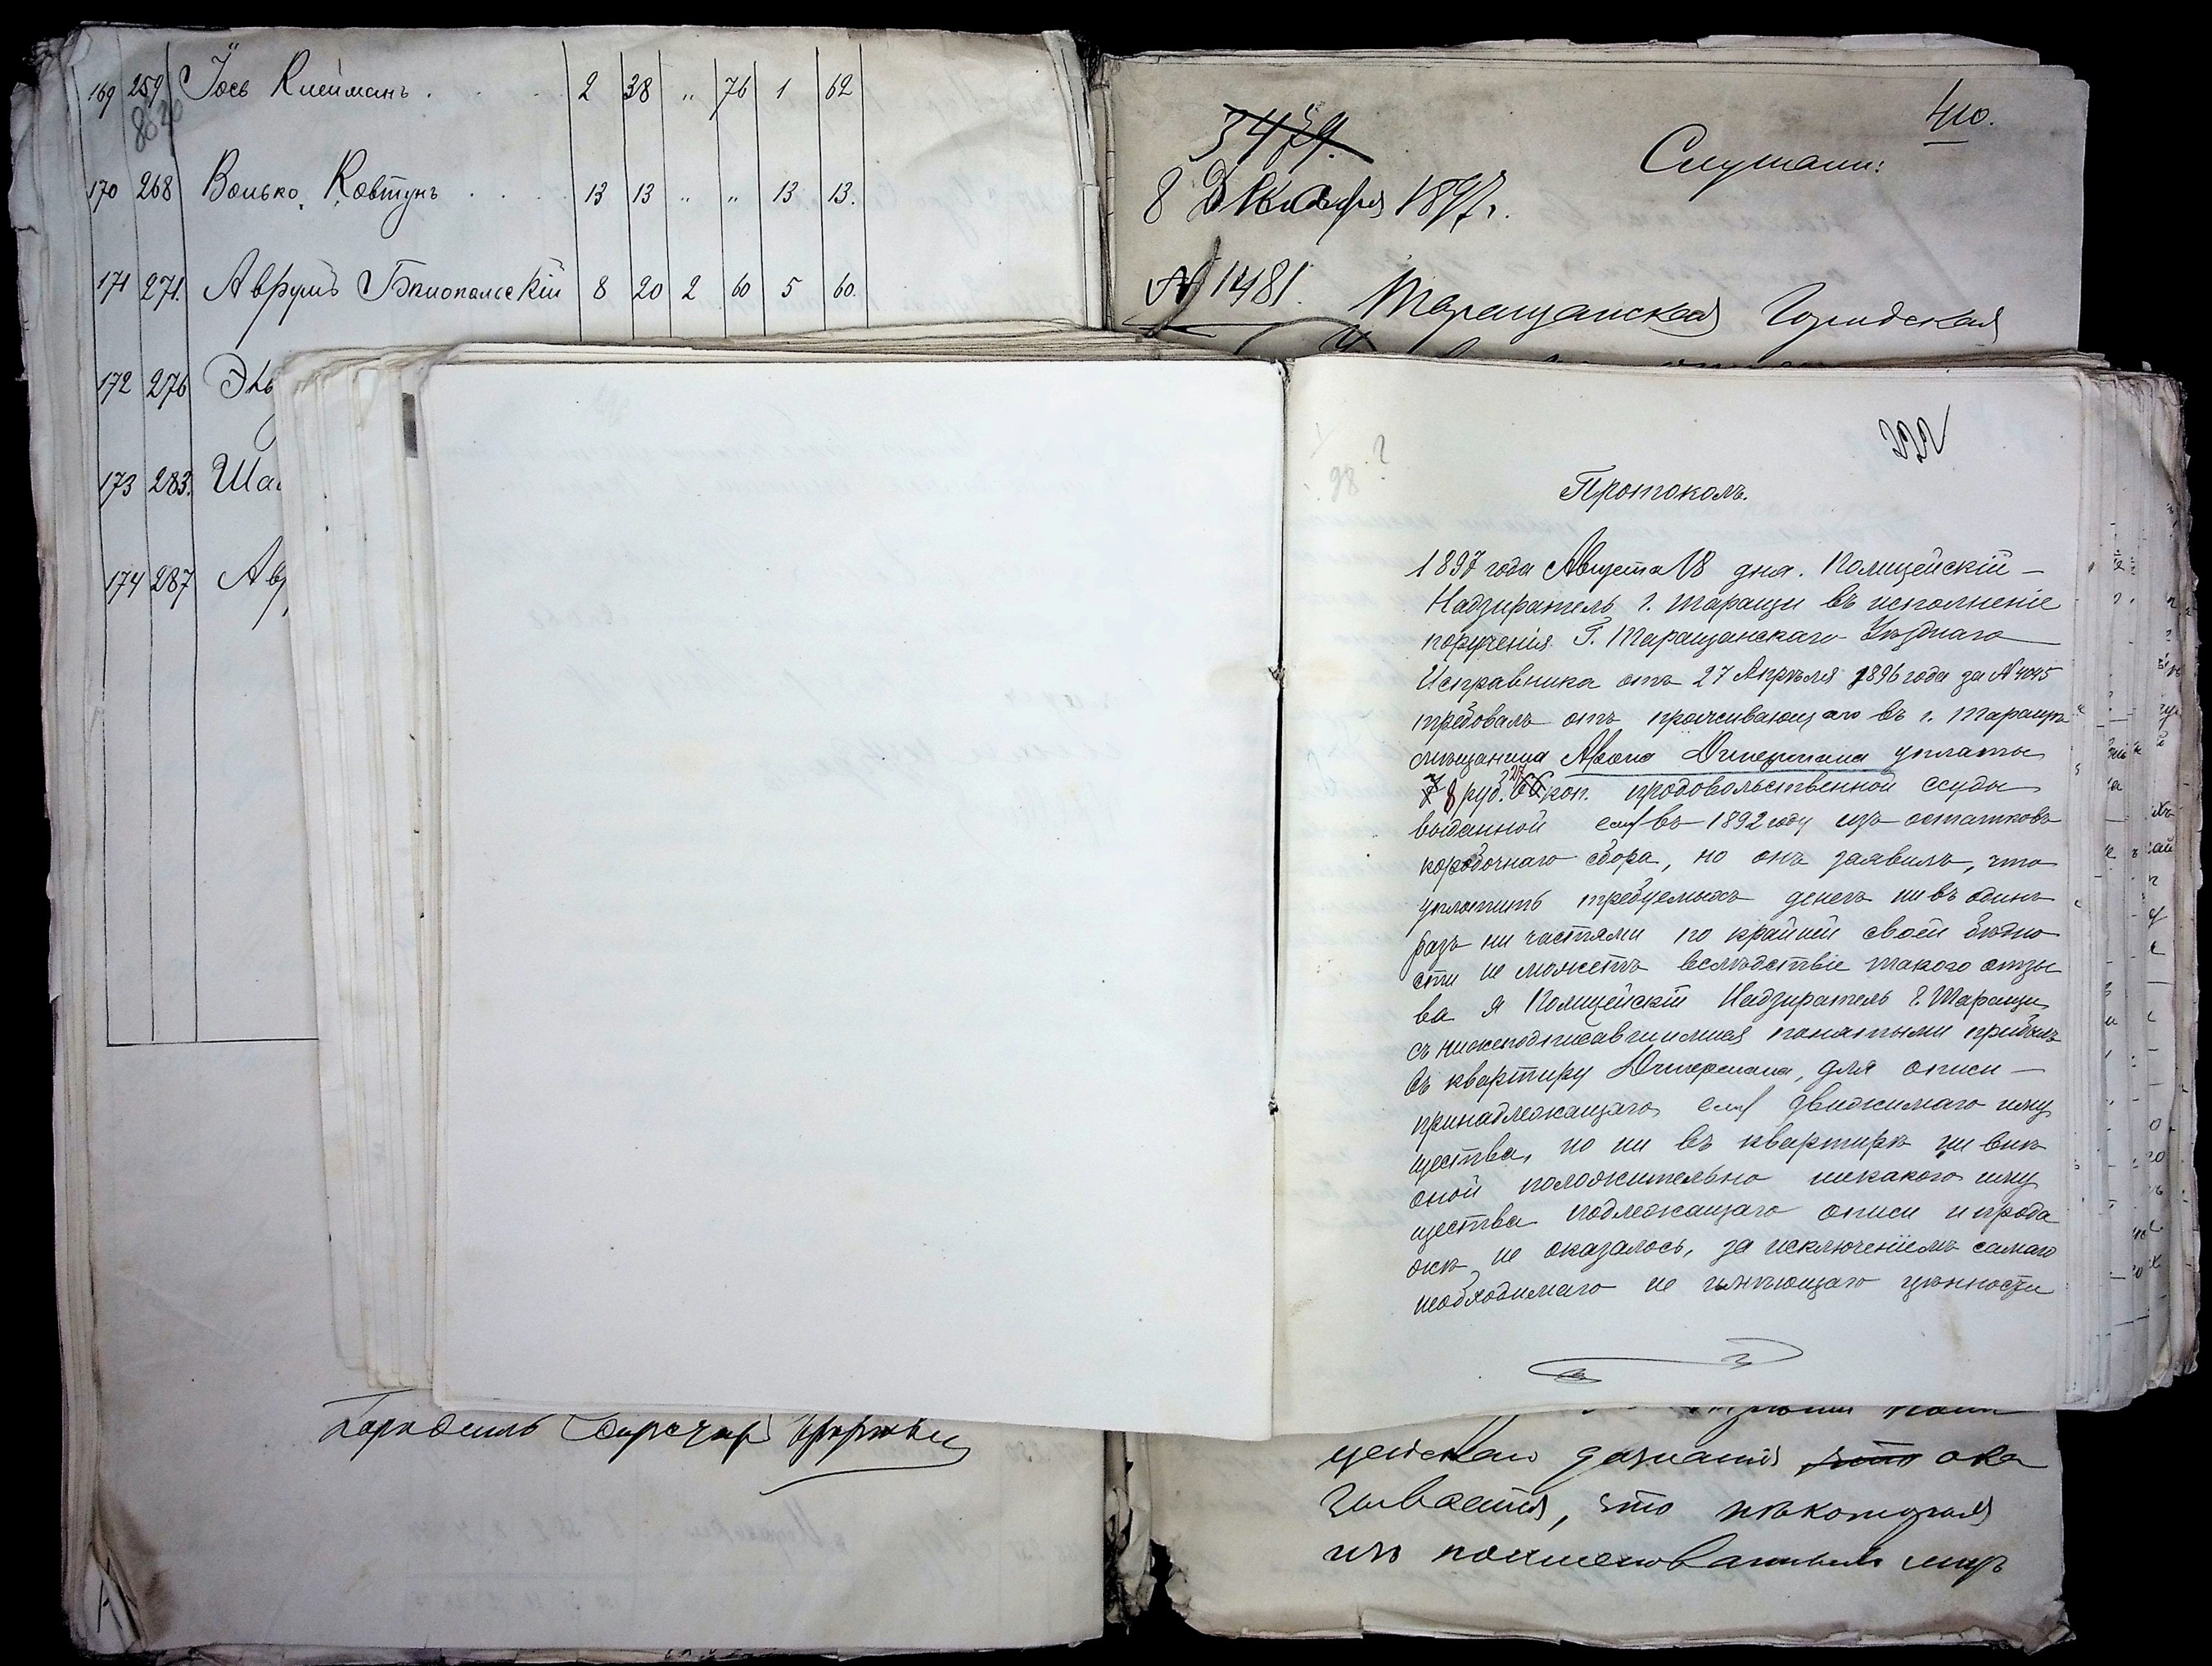 169 259 Іось Клейманъ . . . 2 38 „ 76 1 62
170 268 Волько Ковтунъ . . . 13 13 „ „ 13 13.
171 271. Аврумъ Бялопольскій 8 20 2 60 5 60.
172 276
173 283.
174 287
410.
3479.
Слушали:
8 Декабря 1897 г.
№ 1481.
Таращанская Городская
332
98 ?
Протоколъ.
1897 года Августа 18 дня. Полицейскій —
Надзиратель г. Таращи въ исполненіе
порученія Г. Таращанскаго Уѣзднаго
Исправника отъ 27 Апрѣля 1896 года за № 4045
требовалъ отъ проживающаго въ г. Таращѣ
мѣщанина уплаты
8 руб. 27 коп. продовольственной ссуды
выданной ему въ 1892 году изъ остатковъ
коробочнаго сбора, но онъ заявилъ, что
уплатить требуемыхъ денегъ ни въ одинъ
разъ ни частями по крайней своей бѣдно
сти не можетъ вслѣдствіе такого отзы
ва я Полицейскій Надзиратель г. Таращи
съ нижеподписавшимися понятыми прибылъ
въ квартиру для описи —
принадлежащаго ему движимаго иму
щества, но ни въ квартирѣ ни внѣ
оной положительно никакого иму
щества подлежащаго описи и прода
жѣ не оказалось, за исключеніемъ самаго
необходимаго не имѣющаго цѣнности
цейскаго дознанія что ока
зывается, что нѣкоторыя
изъ поименованныхъ лицъ